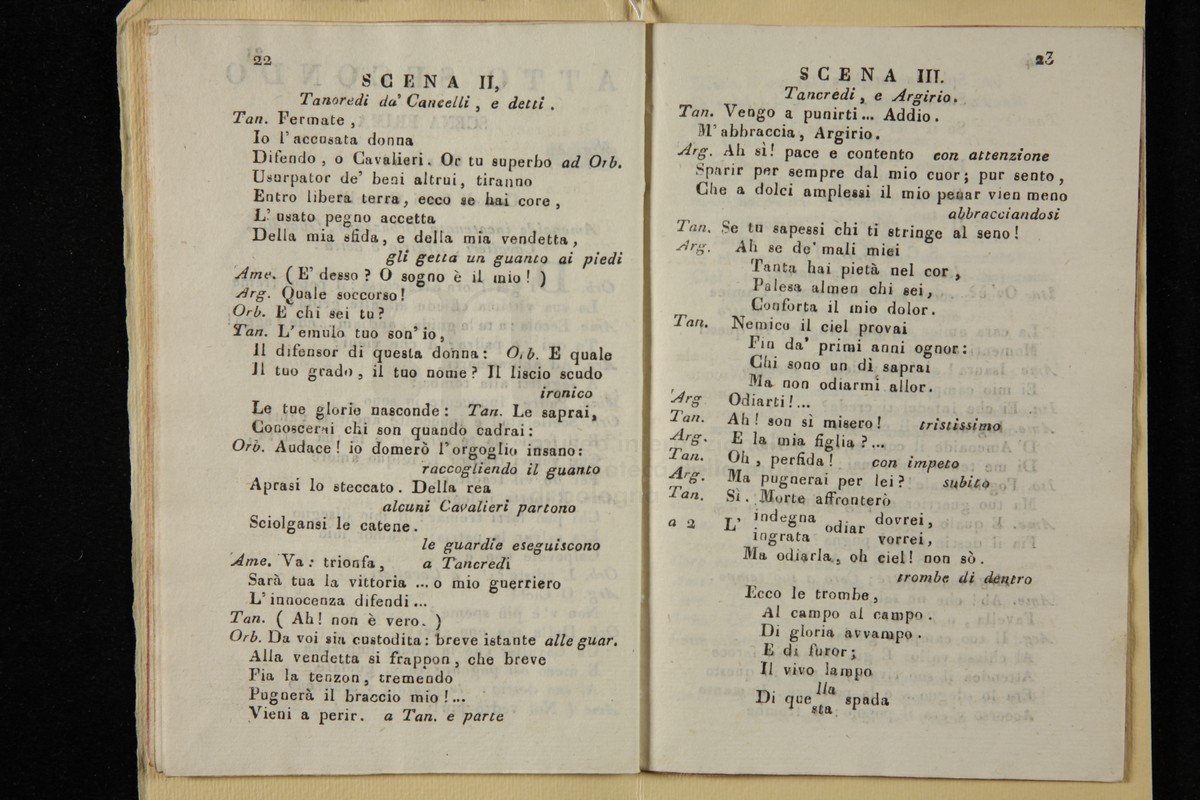 22
SCENA II,
Tanoredi da' Cancelli, e detti.
Tan. Fermate,
Io l'accusata donna
Difendo, o Cavalieri. Or tu superbo ad Orb.
Usurpator de' beni altrui, tiranno
Entro libera terra, ecco se hai core,
L'usato pegno accetta
Della mia sfida, e della mia vendetta,
gli getta un guanto ai piedi
Ame. (E' desso? O sogno è il mio!)
Arg. Quale soccorso!
Orb. E chi sei tu?
Tan. L'emulo tuo son'io,
Il difensor di questa donna: Orb. E quale
Il tuo grado, il tuo nome? Il liscio scudo
ironico
Le tue glorie nasconde: Tan. Le saprai,
Conoscerai chi son quando cadrai:
Orb. Audace! io domerò l'orgoglio insano:
raccogliendo il guanto
Aprasi lo steccato. Della rea
alcuni Cavalieri partono
Sciolgansi le catene.
le guardie eseguiscono
Ame. Va: trionfa, a Tancredi
Sarà tua la vittoria ... o mio guerriero
L'innocenza difendi...
Tan. (Ah! non è vero.)
Orb. Da voi sia custodita: breve istante alle guar.
Alla vendetta si frappon, che breve
Fia la tenzon, tremendo
Pugnerà il braccio mio!...
Vieni a perir. a Tan. e parte
23
SCENA III.
Tancredi, e Argirio.
Tan. Vengo a punirti... Addio.
M'abbraccia, Argirio.
Arg. Ah sì! pace e contento con attenzione
Sparir per sempre dal mio cuor; pur sento,
Che a dolci amplessi il mio penar vien meno
abbracciandosi
Tan. Se tu sapessi chi ti stringe al seno!
Arg. Ah se de' mali miei
Tanta hai pietà nel cor,
Palesa almen chi sei,
Conforta il mio dolor.
Tan. Nemico il ciel provai
Fin da' primi anni ognor:
Chi sono un dì saprai
Ma non odiarmi allor.
Arg Odiarti!...
Tan. Ah! son sì misero! tristissimo
Arg. E la mia figlia?...
Tan. Oh, perfida! con impeto
Arg. Ma pugnerai per lei? subito
Tan. Sì. Morte affronterò
a 2 L' indegna odiar dovrei,
ingrata vorrei,
Ma odiarla, oh ciel! non sò.
trombe di dentro
Ecco le trombe,
Al campo al campo.
Di gloria avvampo.
E di furor;
Il vivo lampo
Di que lla spada
sta